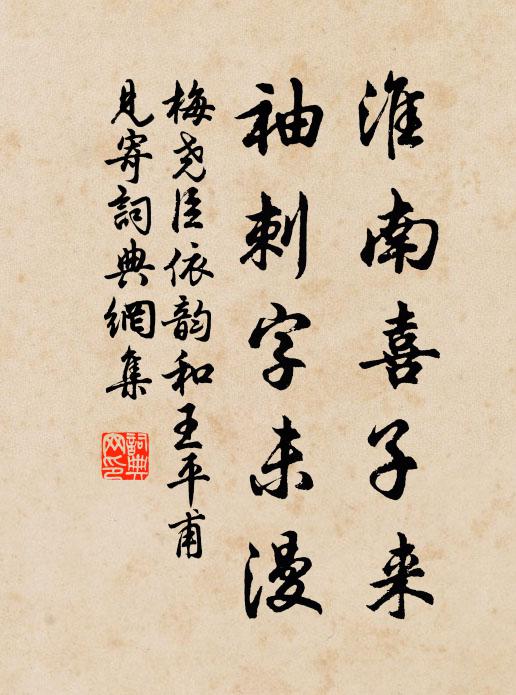 淮南喜子来
袖刺字未漫
梅尧臣依韵和王平甫
见寄詞典網集
詞典网印